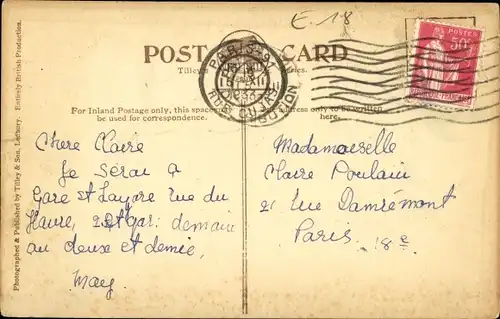 E.18
POST CARD
Tilley's Series.
POSTES
50c
RÉPUBLIQUE FRANÇAISE
PARIS
1933
For Inland Postage only, this space may be used for correspondence.
The address only to be written here.
Photographed & Published by Tilley & Son, Ledbury. Entirely British Production.
Chere Claire
Je serai a
Gare st Lazare rue du
Havre, demain
au deux et demie,
May.
Mademoiselle
Claire Poulain
21 Rue Damrémont
Paris 18e